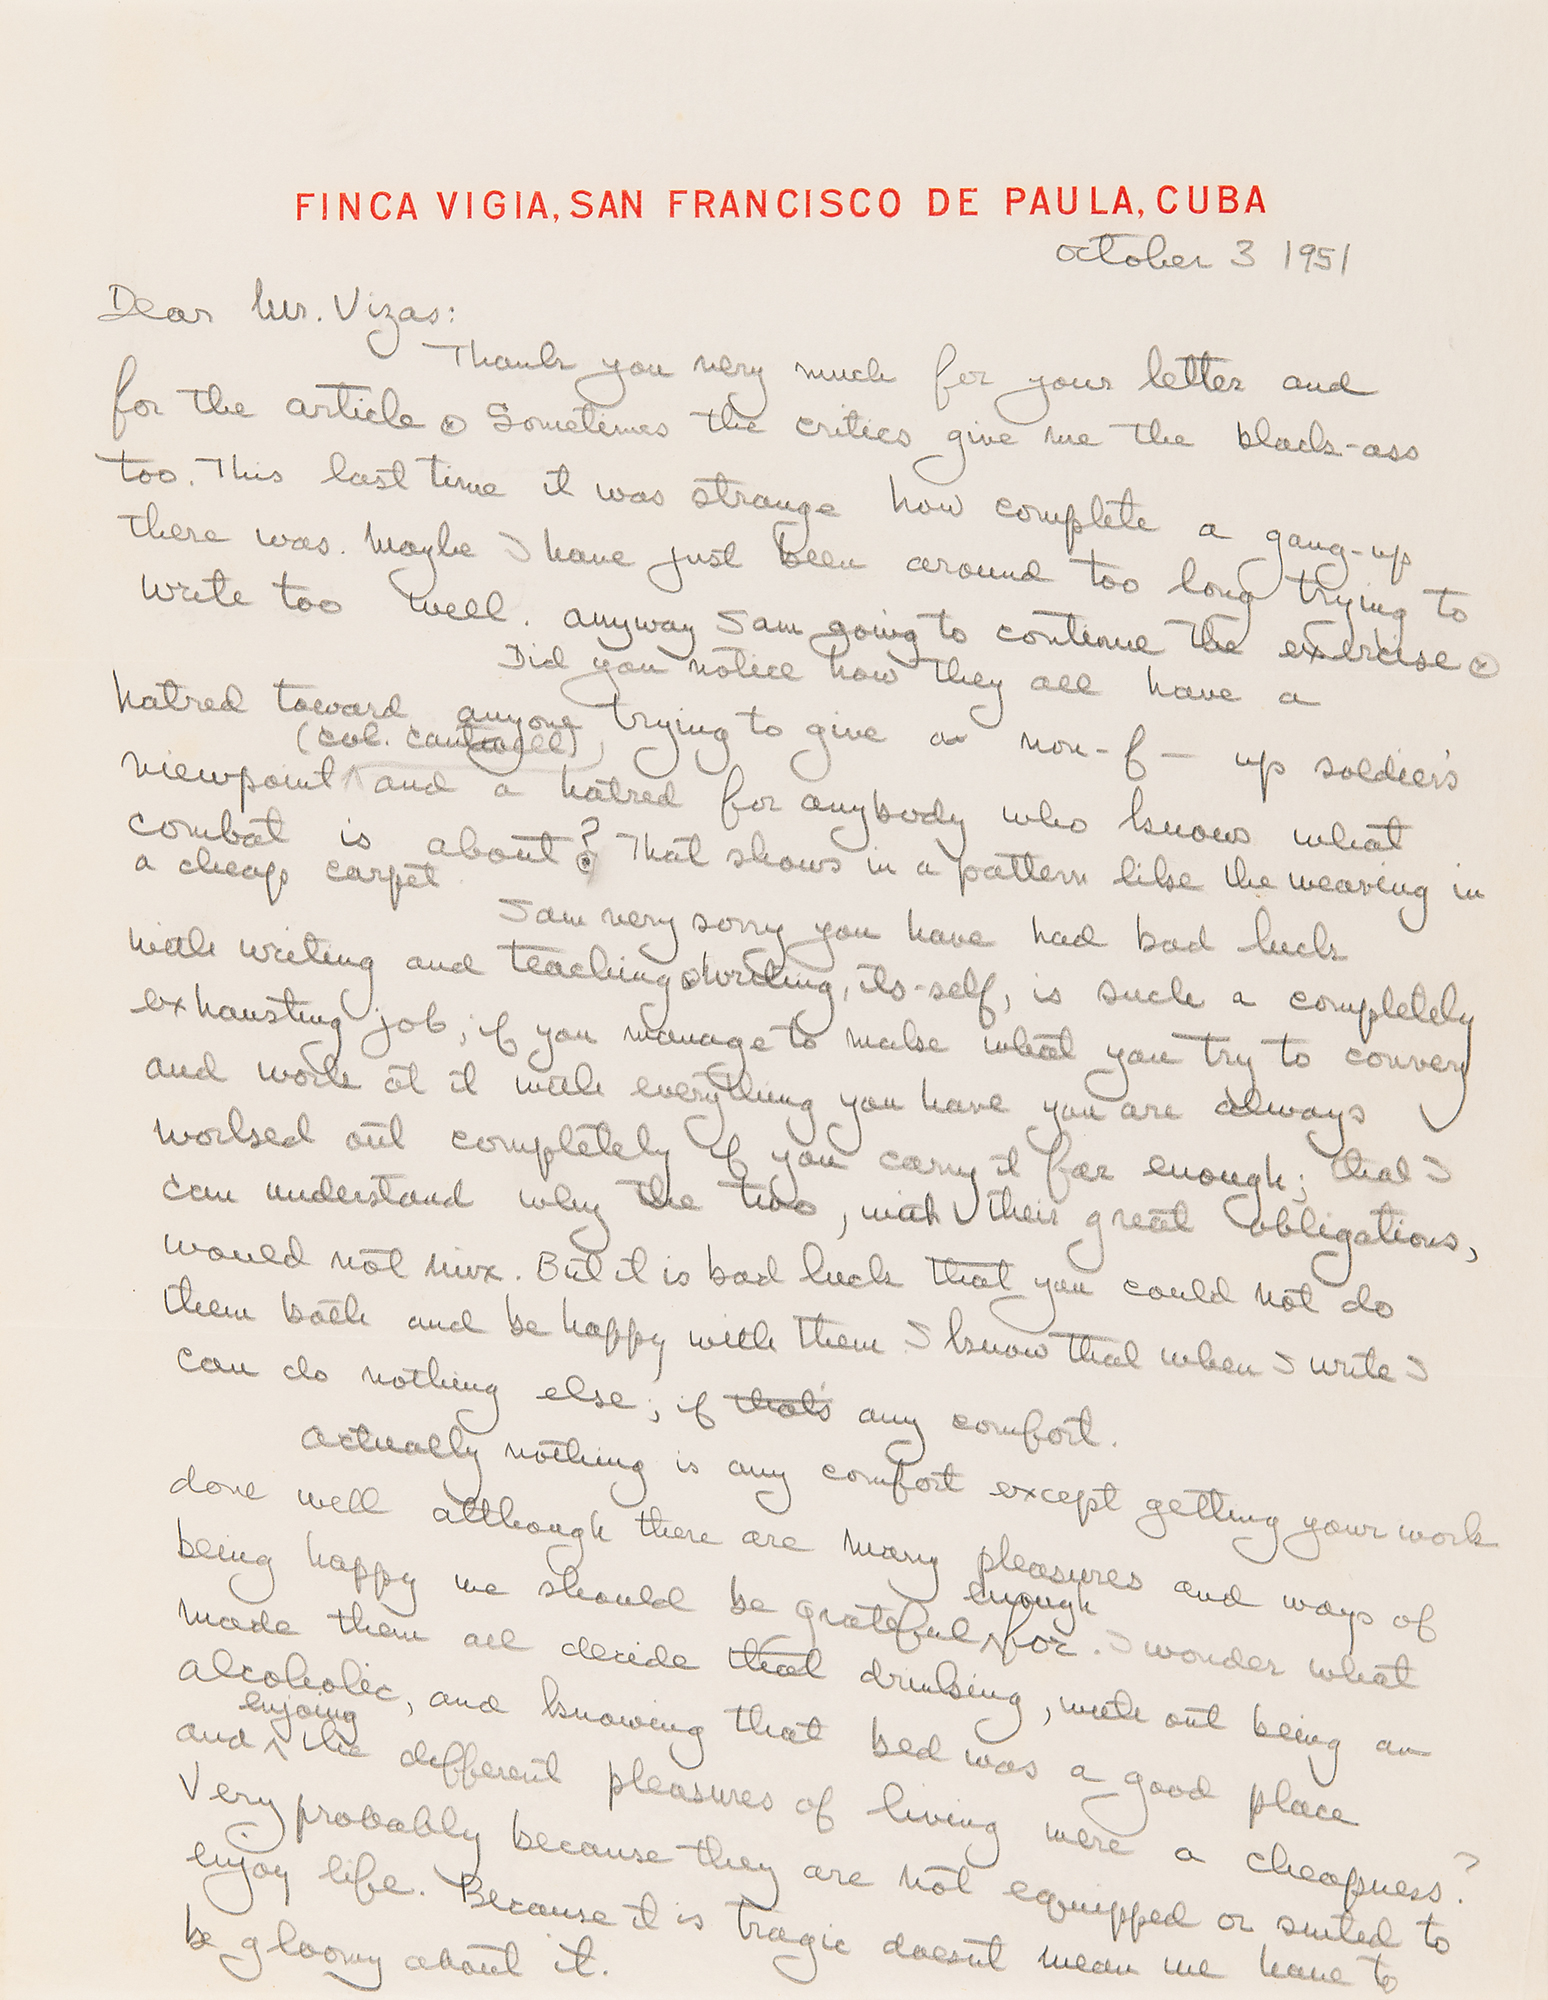 FINCA VIGIA, SAN FRANCISCO DE PAULA, CUBA
October 3 1951
Dear Mr. Vizas:
Thank you very much for your letter and
for the article. Sometimes the critics give me the black-ass
too. This last time it was strange how complete a gang-up
there was. Maybe I have just been around too long trying to
write too well. Anyway I am going to continue the exercise.
Did you notice how they all have a
hatred toward anyone trying to give a non-f— up soldier's
(col. cantwell)
viewpoint and a hatred for anybody who knows what
combat is about? That shows in a pattern like the weaving in
a cheap carpet
I am very sorry you have had bad luck
with writing and teaching. Writing, its-self, is such a completely
exhausting job, if you manage to make what you try to convey
and work at it with everything you have you are always
worked out completely if you carry it far enough; that I
can understand why the two, with their great obligations,
would not mix. But it is bad luck that you could not do
them both and be happy with them. I know that when I write I
can do nothing else; if that's any comfort.
Actually nothing is any comfort except getting your work
done well although there are many pleasures and ways of
being happy we should be grateful enough for. I wonder what
made them all decide that drinking, with out being an
alcoholic, and knowing that bed was a good place
and enjoing the different pleasures of living were a cheapness?
Very probably because they are not equipped or suited to
enjoy life. Because it is tragic doesnt mean we have to
be gloomy about it.